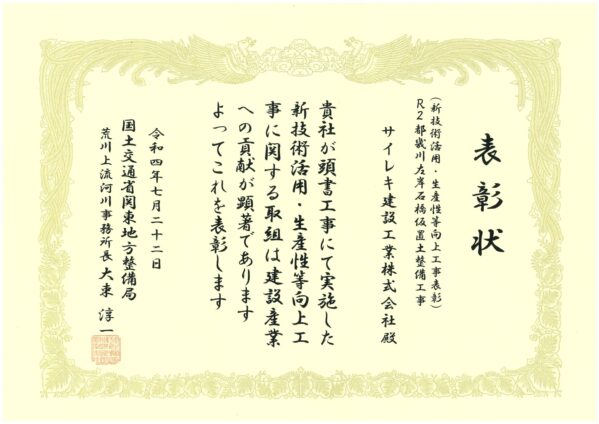 表彰状
(新技術活用・生産性等向上工事表彰)
R2都幾川左岸石橋仮置土整備工事
サイレキ建設工業株式会社 殿
貴社が頭書工事にて実施した
新技術活用・生産性等向上工
事に関する取組は建設産業
への貢献が顕著であります
よってこれを表彰します
令和四年七月二十二日
国土交通省関東地方整備局
荒川上流河川事務所長 大東 淳一